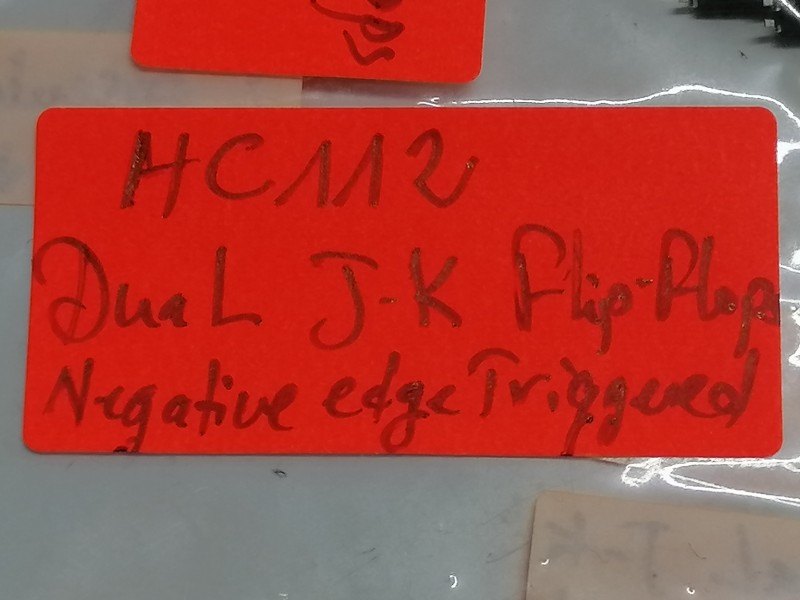 HC112
Dual J-K Flip-Flop
Negative edge Triggered